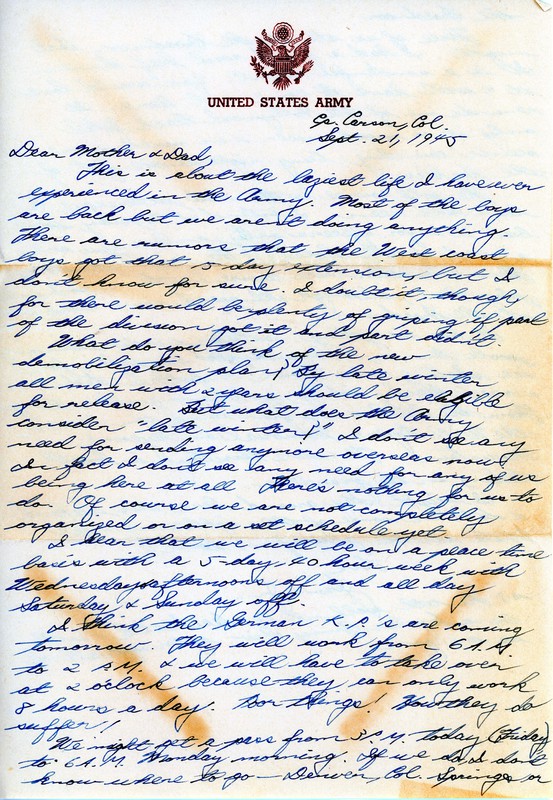 UNITED STATES ARMY
Cp. Carson, Col.
Sept. 21, 1945
Dear Mother & Dad,
This is about the laziest life I have ever
experienced in the Army. Most of the boys
are back but we aren't doing anything.
There are rumors that the West coast
boys got that 5 day extension, but I
don't know for sure. I doubt it, though,
for there would be plenty of griping if part
of the division got it and part didn't.
What do you think of the new
demobilization plan? By late winter
all men with 2 years should be eligible
for release. But what does the Army
consider "late winter?" I don't see any
need for sending anymore overseas now.
In fact I don't see any need for any of us
being here at all. There's nothing for us to
do. Of course we are not completely
organized or on a set schedule yet.
I hear that we will be on a peace time
basis with a 5-day, 40 hour week with
Wednesday afternoons off and all day
Saturday & Sunday off.
I think the German K.P.'s are coming
tomorrow. They will work from 6 A.M.
to 2 P.M. & we will have to take over
at 2 o'clock because they can only work
8 hours a day. Poor things! How they do
suffer!
We might get a pass from 3 P.M. today (Friday)
to 6 A.M. Monday morning. If we do I don't
know where to go — Denver, Col. Springs or